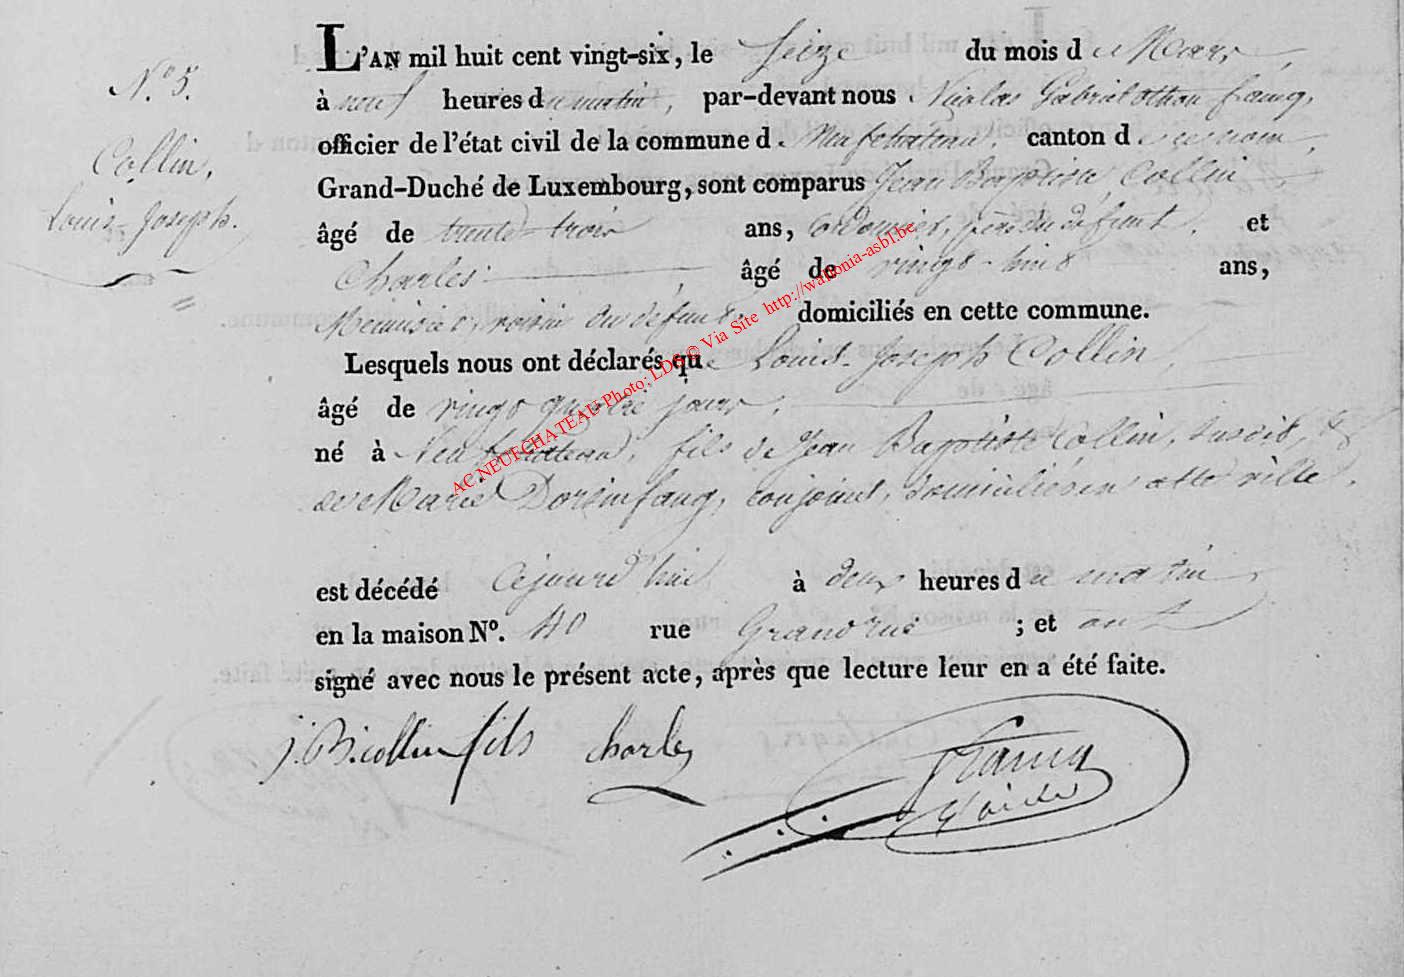 N.º 5.
Collin,
Louis-Joseph.
L'AN mil huit cent vingt-six, le Seize du mois de Mars,
à neuf heures du matin, par-devant nous Nicolas Gabriel
officier de l'état civil de la commune de Neufchateau, canton de ce nom,
Grand-Duché de Luxembourg, sont comparus Jean Baptiste Collin
âgé de trente-trois ans, cordonnier, père du défunt, et
Charles âgé de vingt-huit ans,
Menuisier, voisin du défunt, domiciliés en cette commune.
Lesquels nous ont déclarés que Louis-Joseph Collin,
âgé de vingt quatre jours,
né à Neufchateau, fils de Jean Baptiste Collin, susdit, &
de Marie conjoints, domiciliés en cette ville.
est décédé cejourd'hui à deux heures du matin
en la maison Nº. 40 rue Grand rue ; et ont
signé avec nous le présent acte, après que lecture leur en a été faite.
j. B. collin fils Charles
AC NEUFCHATEAU Photo: LDS © Via Site http://wallonia-asbl.be